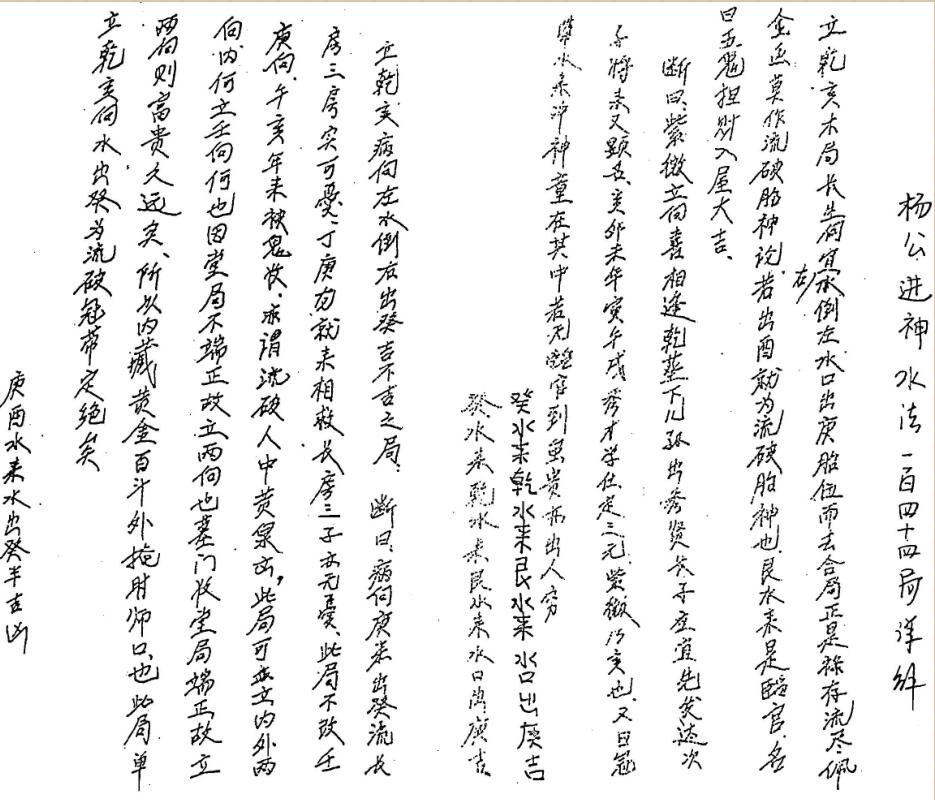 杨公进神水法一百四十四局详解
立乾亥木局长生向宜右水倒左水口出庚胎位而去合局正是禄存流尽佩
金鱼莫作流破胎神论若出酉就为流破胎神也艮水来是临官名
曰五鬼担财入屋大吉、
断曰、紫微立向喜相逢乾葬下儿孙出秀资长子庄宜先发达次
子将来又显名、亥卯未年寅午戌秀才学仕定三元、紫微乃亥也、又曰冠
带水来冲神童在其中若无临官到虽贵亦出人穷
癸水来乾水来艮水来水口出庚吉
癸水来乾水来艮水来水口出庚吉
立乾亥病向左水倒右出癸吉不吉之局、断曰、病向庚来出癸流长
房三房实可忧、丁庚勿就来相救长房三子亦无忧、此局不改壬
庚向、午亥年来被鬼收、求谓流破人中黄泉凶，此局可立内外两
向内何立壬向何也因堂局不端正故立两向也墓门收堂局端正故立
两向则富贵久远矣、所以内藏黄金百斗外掩时师口、也此局单
立乾亥向水出癸为流破冠带定绝矣
庚酉水来水出癸半吉凶